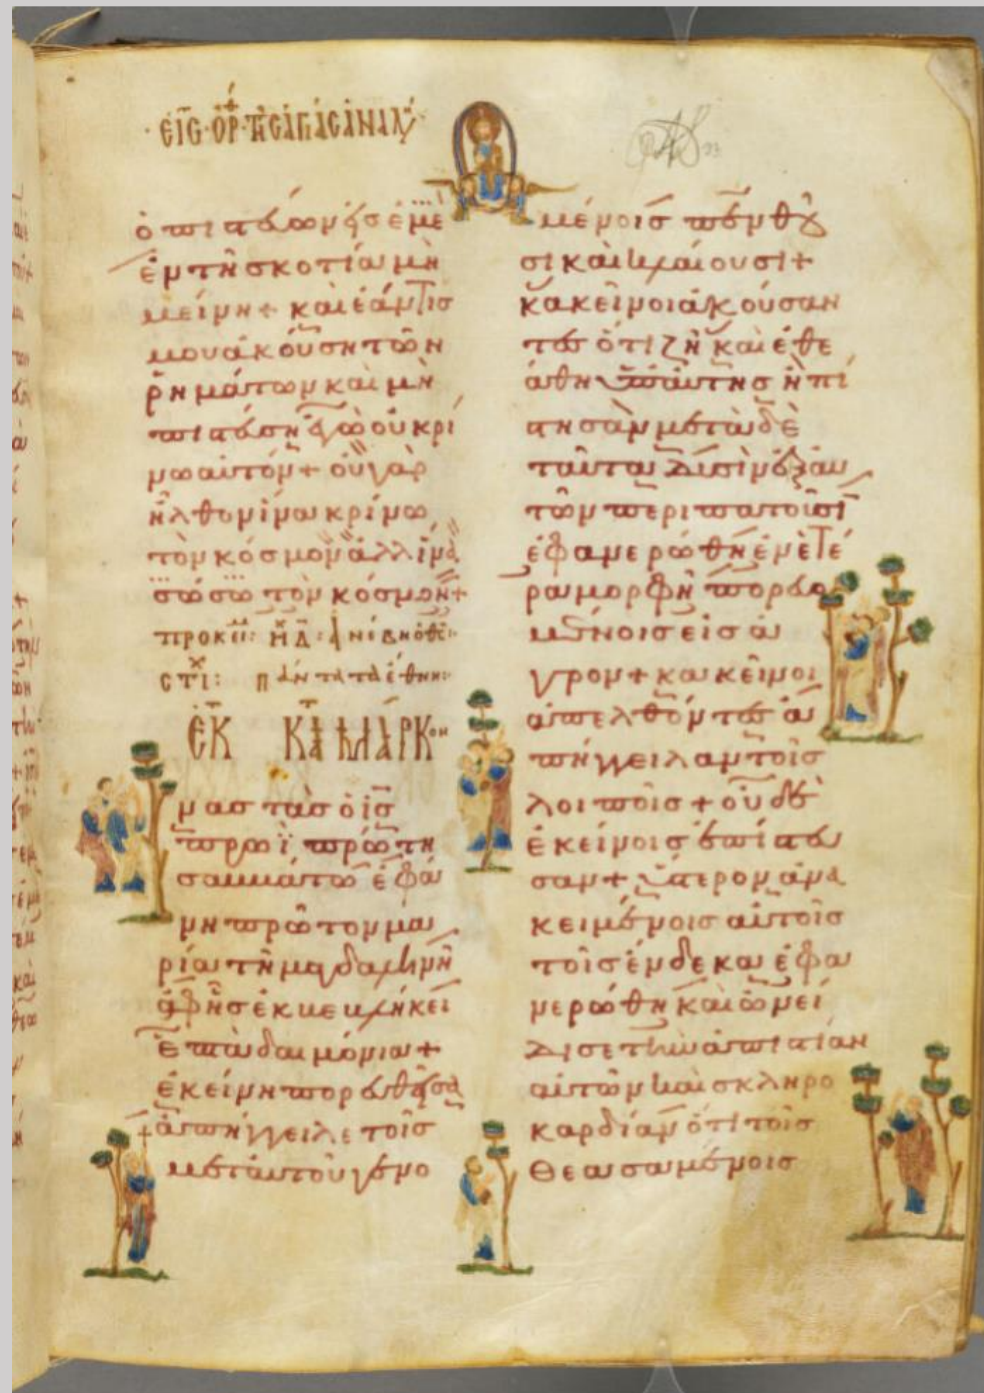 ·ΕἸΣ·ὌΡ·ΤῊΣ ἉΓΊΑΣ ἈΝΑΛ
ὁ πιστεύων εἰς ἐμὲ
ἐν τῆ σκοτία μὴ
μείνη + καὶ ἐάν τις
μου ἀκούση τῶν
ῥημάτων καὶ μὴ
πιστεύση ἐγὼ οὐ κρί
νω αὐτόν + οὐ γὰρ
ἦλθον ἵνα κρίνω
τὸν κόσμον ἀλλ ἵνα
σώσω τὸν κόσμον +
προκεί: ἦχ δ: ἀνέβη ὁ θς:
στι: πάντα τὰ έθνη:
ἘΚ ΚΑΤ ΜΆΡΚον
ναστὰς ὁ ις
πρωῒ πρώτη
σαββάτου ἐφά
νη πρῶτον μα
ρία τῆ μαγδαληνῆ
ἀφ ἧς ἐκβεβλήκει
ἑπτὰ δαιμόνια +
ἐκείνη πορευθεῖσα
ἀπήγγειλε τοῖς
μετ αὐτοῦ γενο
μένοις πενθοῦ
σι καὶ κλαίουσι +
κακεῖνοι ἀκούσαν
τες ὅτι ζῆ καὶ ἐθε
άθη ὑπ αὐτῆς ἠπί
στησαν μετὰ δὲ
ταῦτα δυσὶν ἐξ αυ
τῶν περιπατοῦσι
ἐφανερώθη ἐν ἑτέ
ρα μορφῆ πορευο
μένοις εἰς ἀ
γρον + κακεῖνοι
ἀπελθόντες ἀ
πήγγειλαν τοῖς
λοιποῖς + οὐδὲ
ἐκείνοις ἐπίστευ
σαν + ὕστερον ἀνα
κειμένοις αὐτοῖς
τοῖς ἕνδεκα ἐφα
νερώθη καὶ ὠνεί
δισε τὴν ἀπιστίαν
αὐτῶν καὶ σκληρο
καρδίαν ὅτι τοῖς
θεασαμένοις